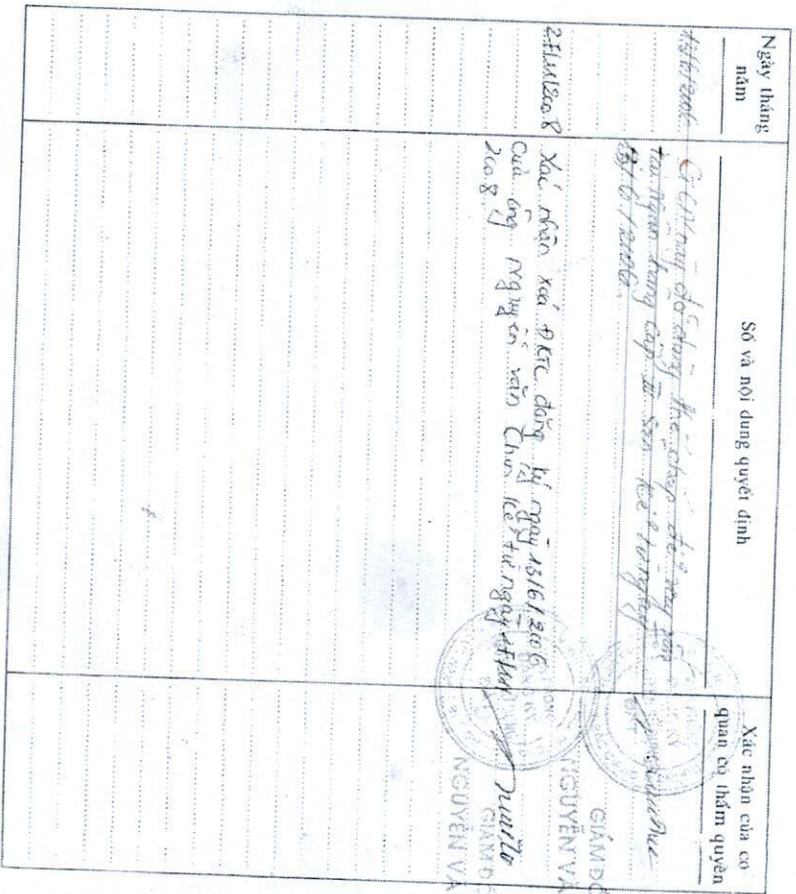 Ngày tháng
năm
Số và nội dung quyết định
Xác nhận của cơ
quan có thẩm quyền
13/6/2006
GCN này đã dùng thế chấp để vay vốn
tại ngân hàng cấp III kể từ ngày
13/6/2006.
GIÁM ĐỐ
NGUYỄN VĂ
27/11/2008
Xác nhận xoá ĐKTC đăng ký ngày 13/6/2006
của ông Nguyễn văn Chun kể từ ngày 27/11
2008.
GIÁM ĐỐ
NGUYỄN VĂ